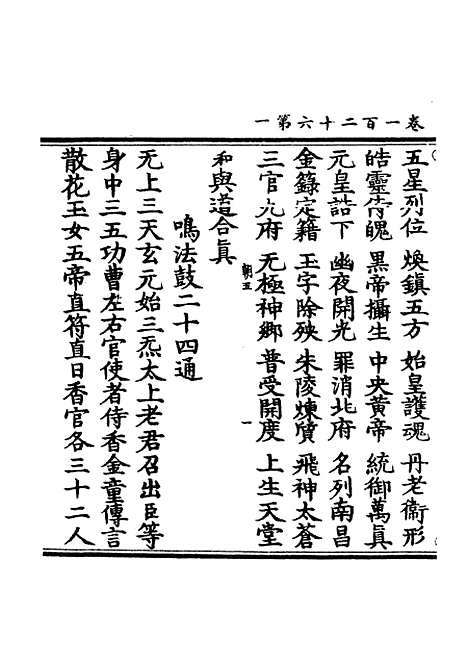 卷一百二十六第一
五星列位　煥鎮五方　始皇護魂　丹老衞形
皓靈侍魄　黑帝攝生　中央黃帝　統御萬真
元皇誥下　幽夜開光　罪消北府　名列南昌
金籙定籍　玉字除殃　朱陵煉質　飛神太蒼
三官九府　无極神鄉　普受開度　上生天堂
朝五　一
和與道合真
鳴法鼓二十四通
无上三天玄元始三炁太上老君召出臣等
身中三五功曹左右官使者侍香金童傳言
散花玉女五帝直符直日香官各三十二人